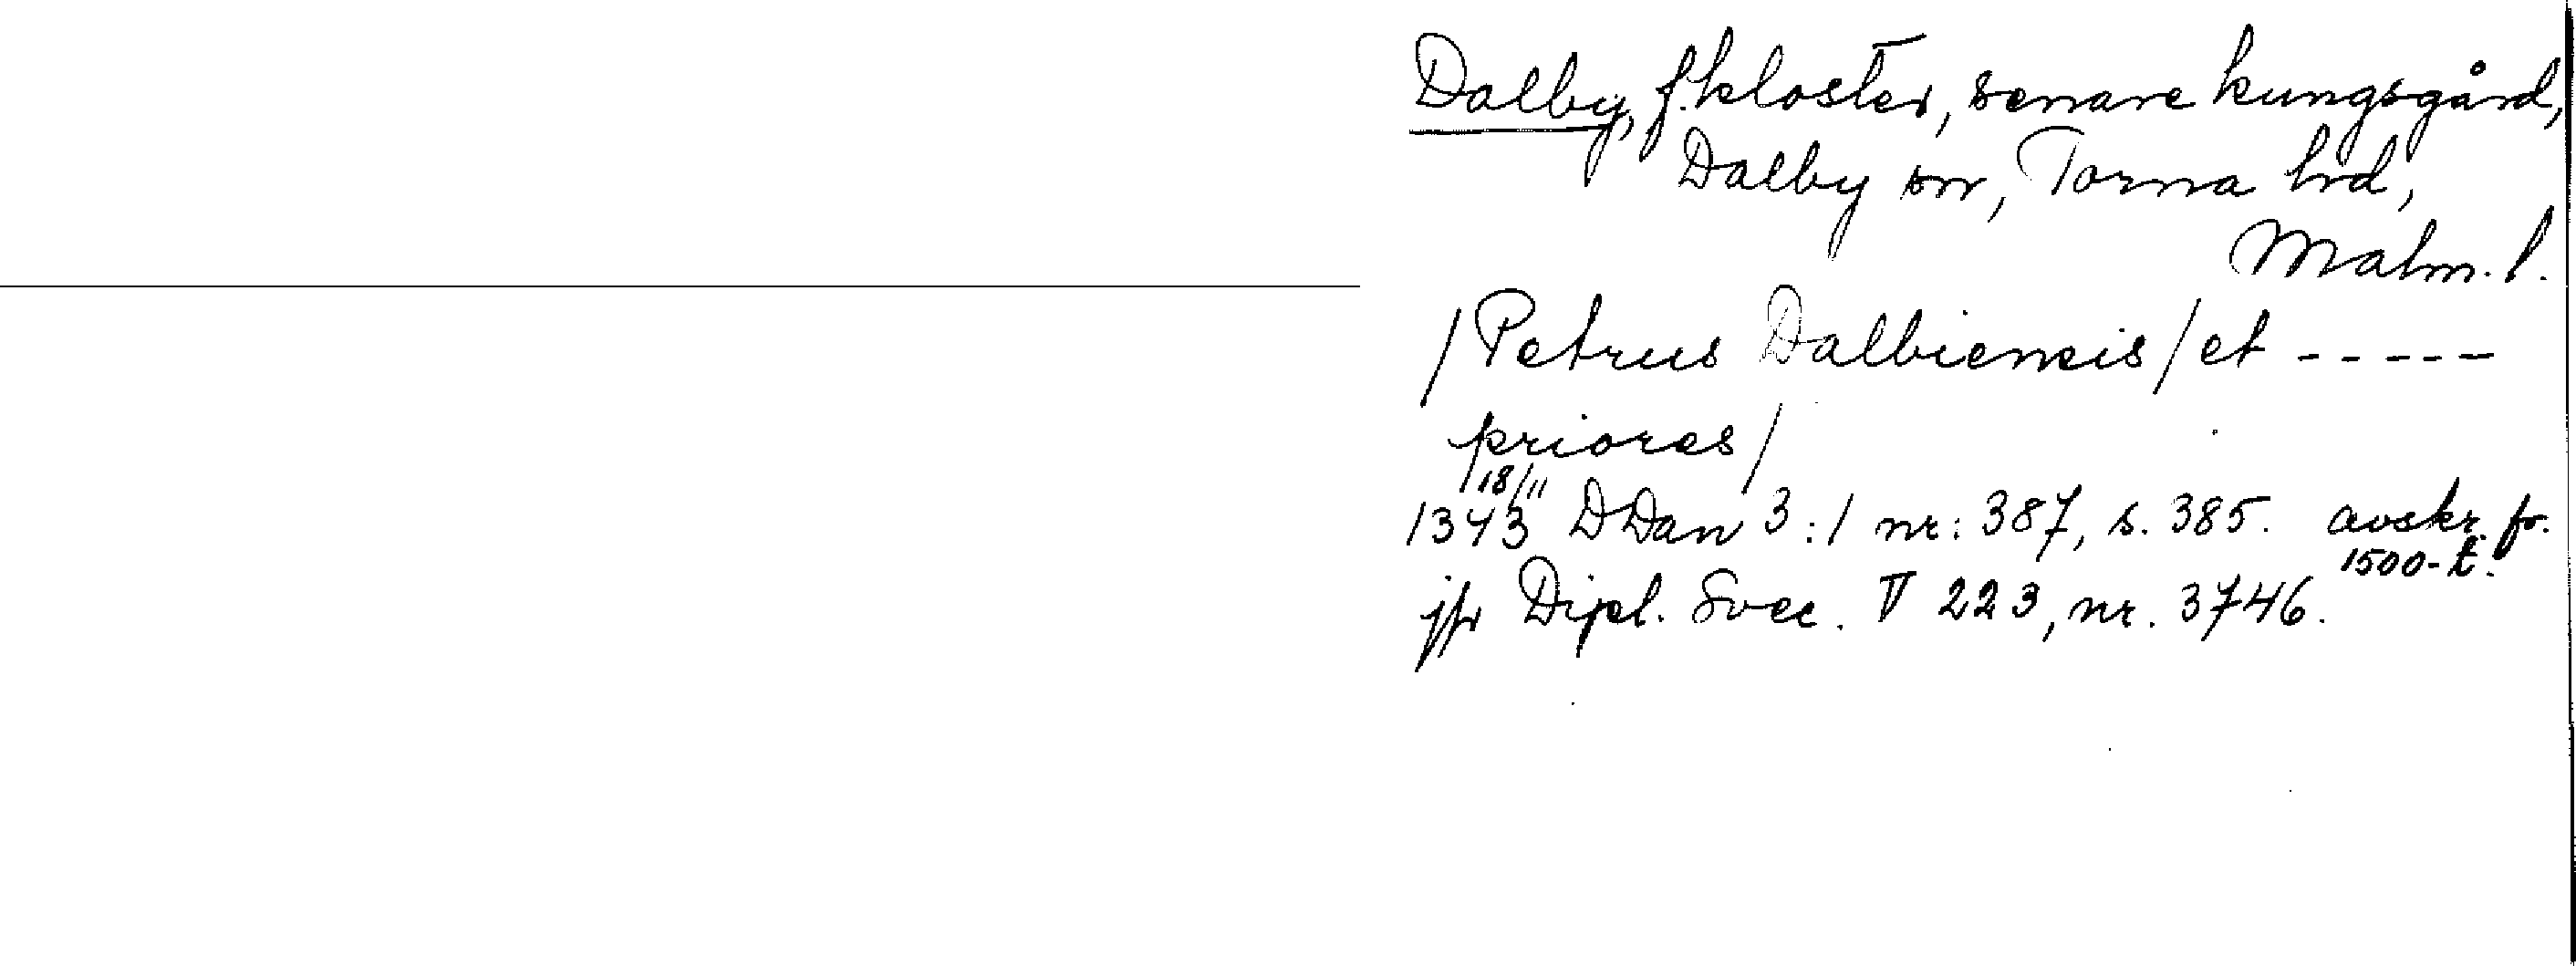 Dalby, f. kloster, senare kungsgård,
Dalby sn, Torna hrd,
Malm. l.
/Petrus Dalbiensis/et -----
priores/
1343 18/11 DDan 3:1 nr: 387, s. 385. avskr. fr.
1500-t.
jfr Dipl. Svec. V 223, nr. 3746.